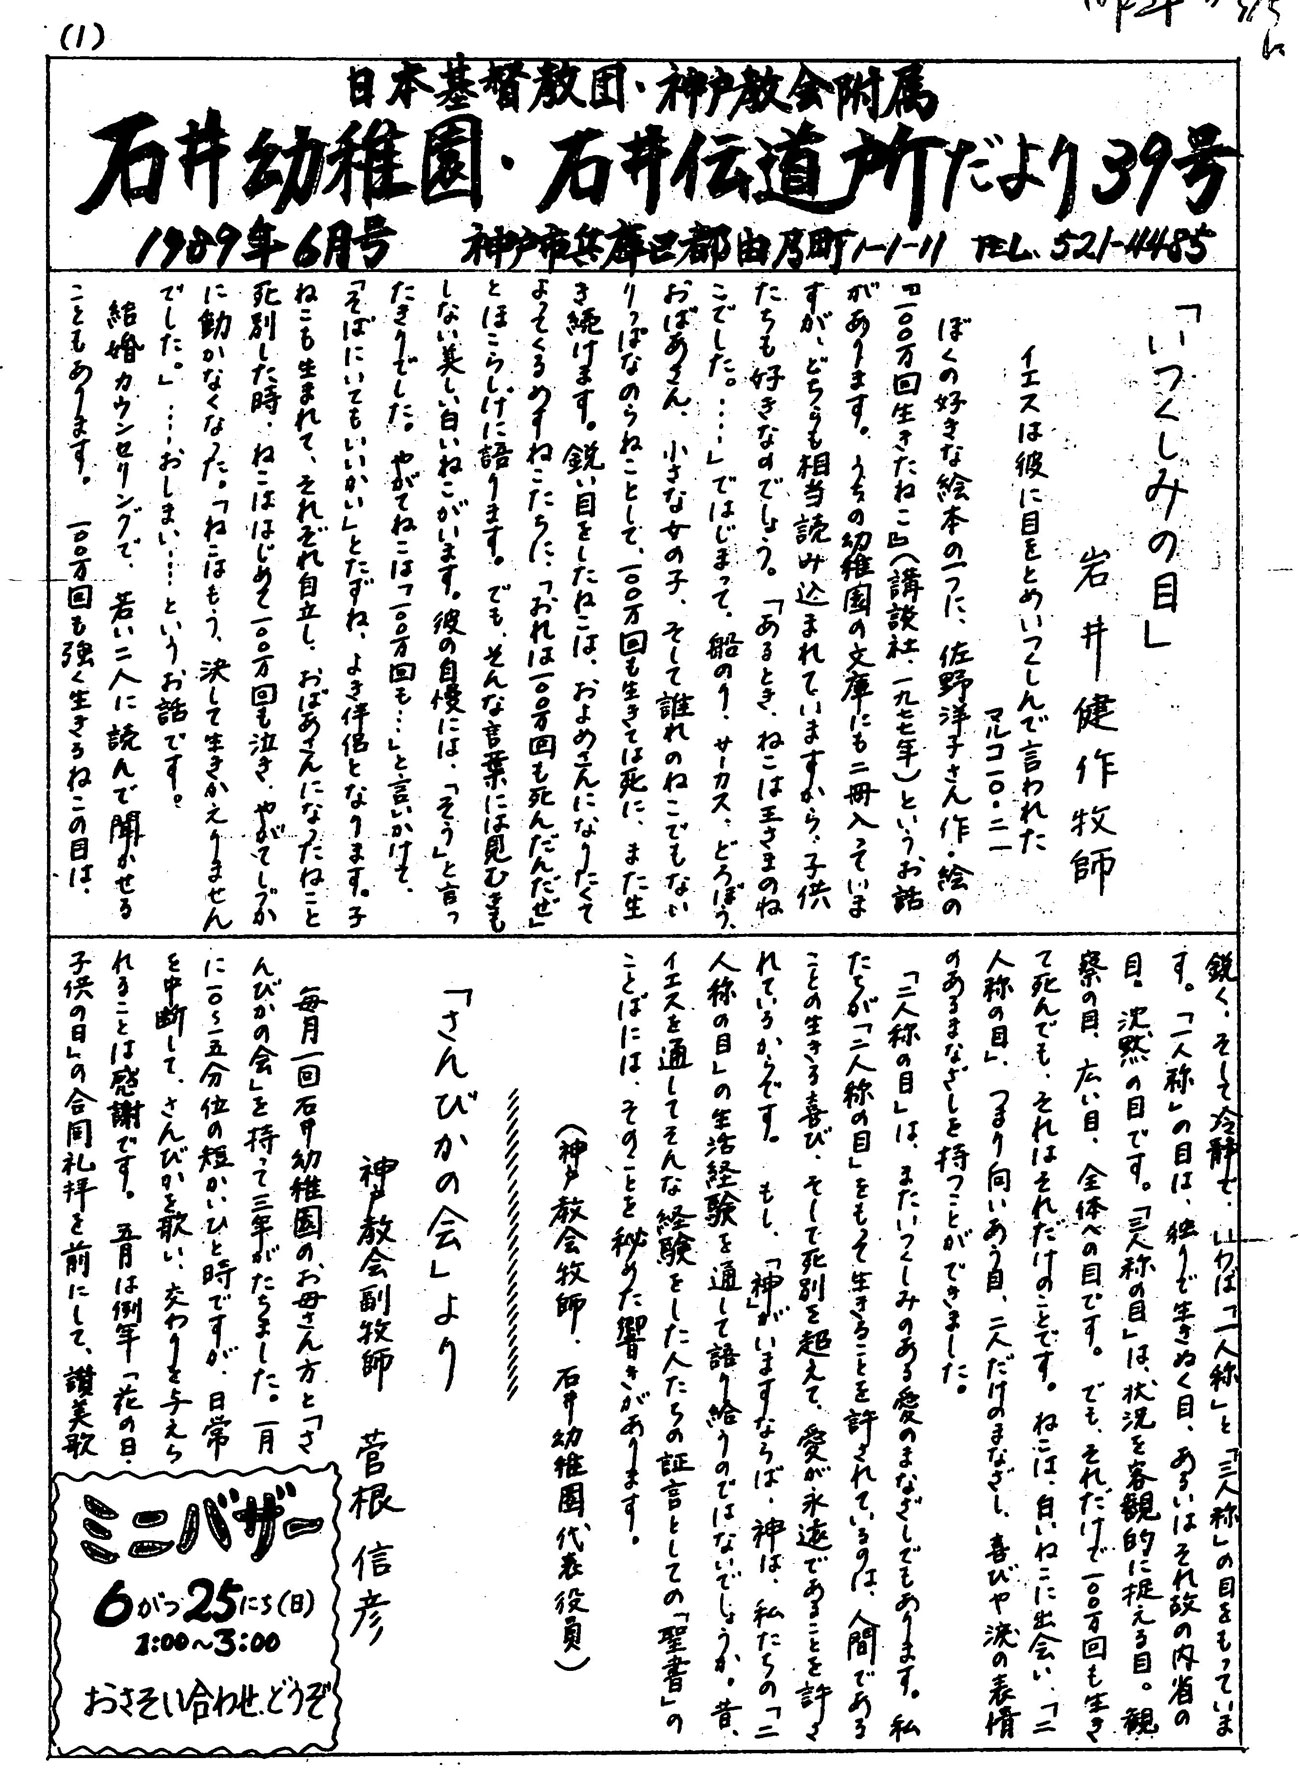 (1)
日本基督教団・神戸教会附属
石井幼稚園・石井伝道所だより39号
1989年6月号 神戸市兵庫区都由乃町1-1-11 TEL. 521-4485
「いつくしみの目」
岩井健作牧師
イエスは彼に目をとめいつくしんで言われた
マルコ一〇・二一
ぼくの好きな絵本の一つに、佐野洋子さん作・絵の
『一〇〇万回生きたねこ』(講談社、一九七七年)というお話
があります。うちの幼稚園の文庫にも二冊入っていま
すが、どちらも相当読み込まれていますから、子供
たちも好きなのでしょう。「あるとき、ねこは王さまのね
こでした。……」ではじまって、船のり、サーカス、どろぼう、
おばあさん、小さな女の子、そして誰れのねこでもない
りっぱなのらねことして、一〇〇万回も生きては死に、また生
き続けます。鋭い目をしたねこは、およめさんになりたくて
よってくるめすねこたちに、「おれは一〇〇万回も死んだんだぜ」
とほこらしげに語ります。でも、そんな言葉には見むきも
しない美しい白いねこがいます。彼の自慢には、「そう」と言っ
たきりでした。やがてねこは「一〇〇万回も…」と言いかけて、
「そばにいてもいいかい」とたずね、よき伴侶となります。子
ねこも生まれて、それぞれ自立し、おばあさんになったねこと
死別した時、ねこははじめて一〇〇万回も泣き、やがてしづか
に動かなくなった。「ねこはもう、決して生きかえりません
でした。」……おしまい……というお話です。
結婚カウンセリングで、若い二人に読んで聞かせる
こともあります。一〇〇万回も強く生きるねこの目は、
鋭く、そして冷静で、いわば「一人称」と「三人称」の目をもっていま
す。「一人称」の目は、独りで生きぬく目、あるいはそれ故の内省の
目。沈黙の目です。「三人称の目」は、状況を客観的に捉える目。観
察の目、広い目、全体への目です。でも、それだけで一〇〇万回も生き
て死んでも、それはそれだけのことです。ねこは、白いねこに出会い、「二
人称の目」、つまり向いあう目、二人だけのまなざし、喜びや涙の表情
のあるまなざしを持つことができました。
「二人称の目」は、またいつくしみのある愛のまなざしでもあります。私
たちが「二人称の目」をもって生きることを許されているのは、人間である
ことの生きる喜び、そして死別を超えて、愛が永遠であることを許さ
れているからです。もし、「神」がいますならば、神は、私たちの「二
人称の目」の生活経験を通して語り給うのではないでしょうか。昔、
イエスを通してそんな経験をした人たちの証言としての「聖書」の
ことばには、そのことを秘めた響きがあります。
(神戸教会牧師、石井幼稚園代表役員)
「さんびかの会」より
神戸教会副牧師 菅根信彦
毎月一回石井幼稚園のお母さん方と「さ
んびかの会」を持って三年がたちました。一月
に一〇〜一五分位の短かいひと時ですが、日常
を中断して、さんびかを歌い、交わりを与えら
れることは感謝です。五月は例年「花の日・
子供の日」の合同礼拝を前にして、讃美歌
ミニバザー
6がつ25にち(日)
1:00〜3:00
おさそい合わせ、どうぞ